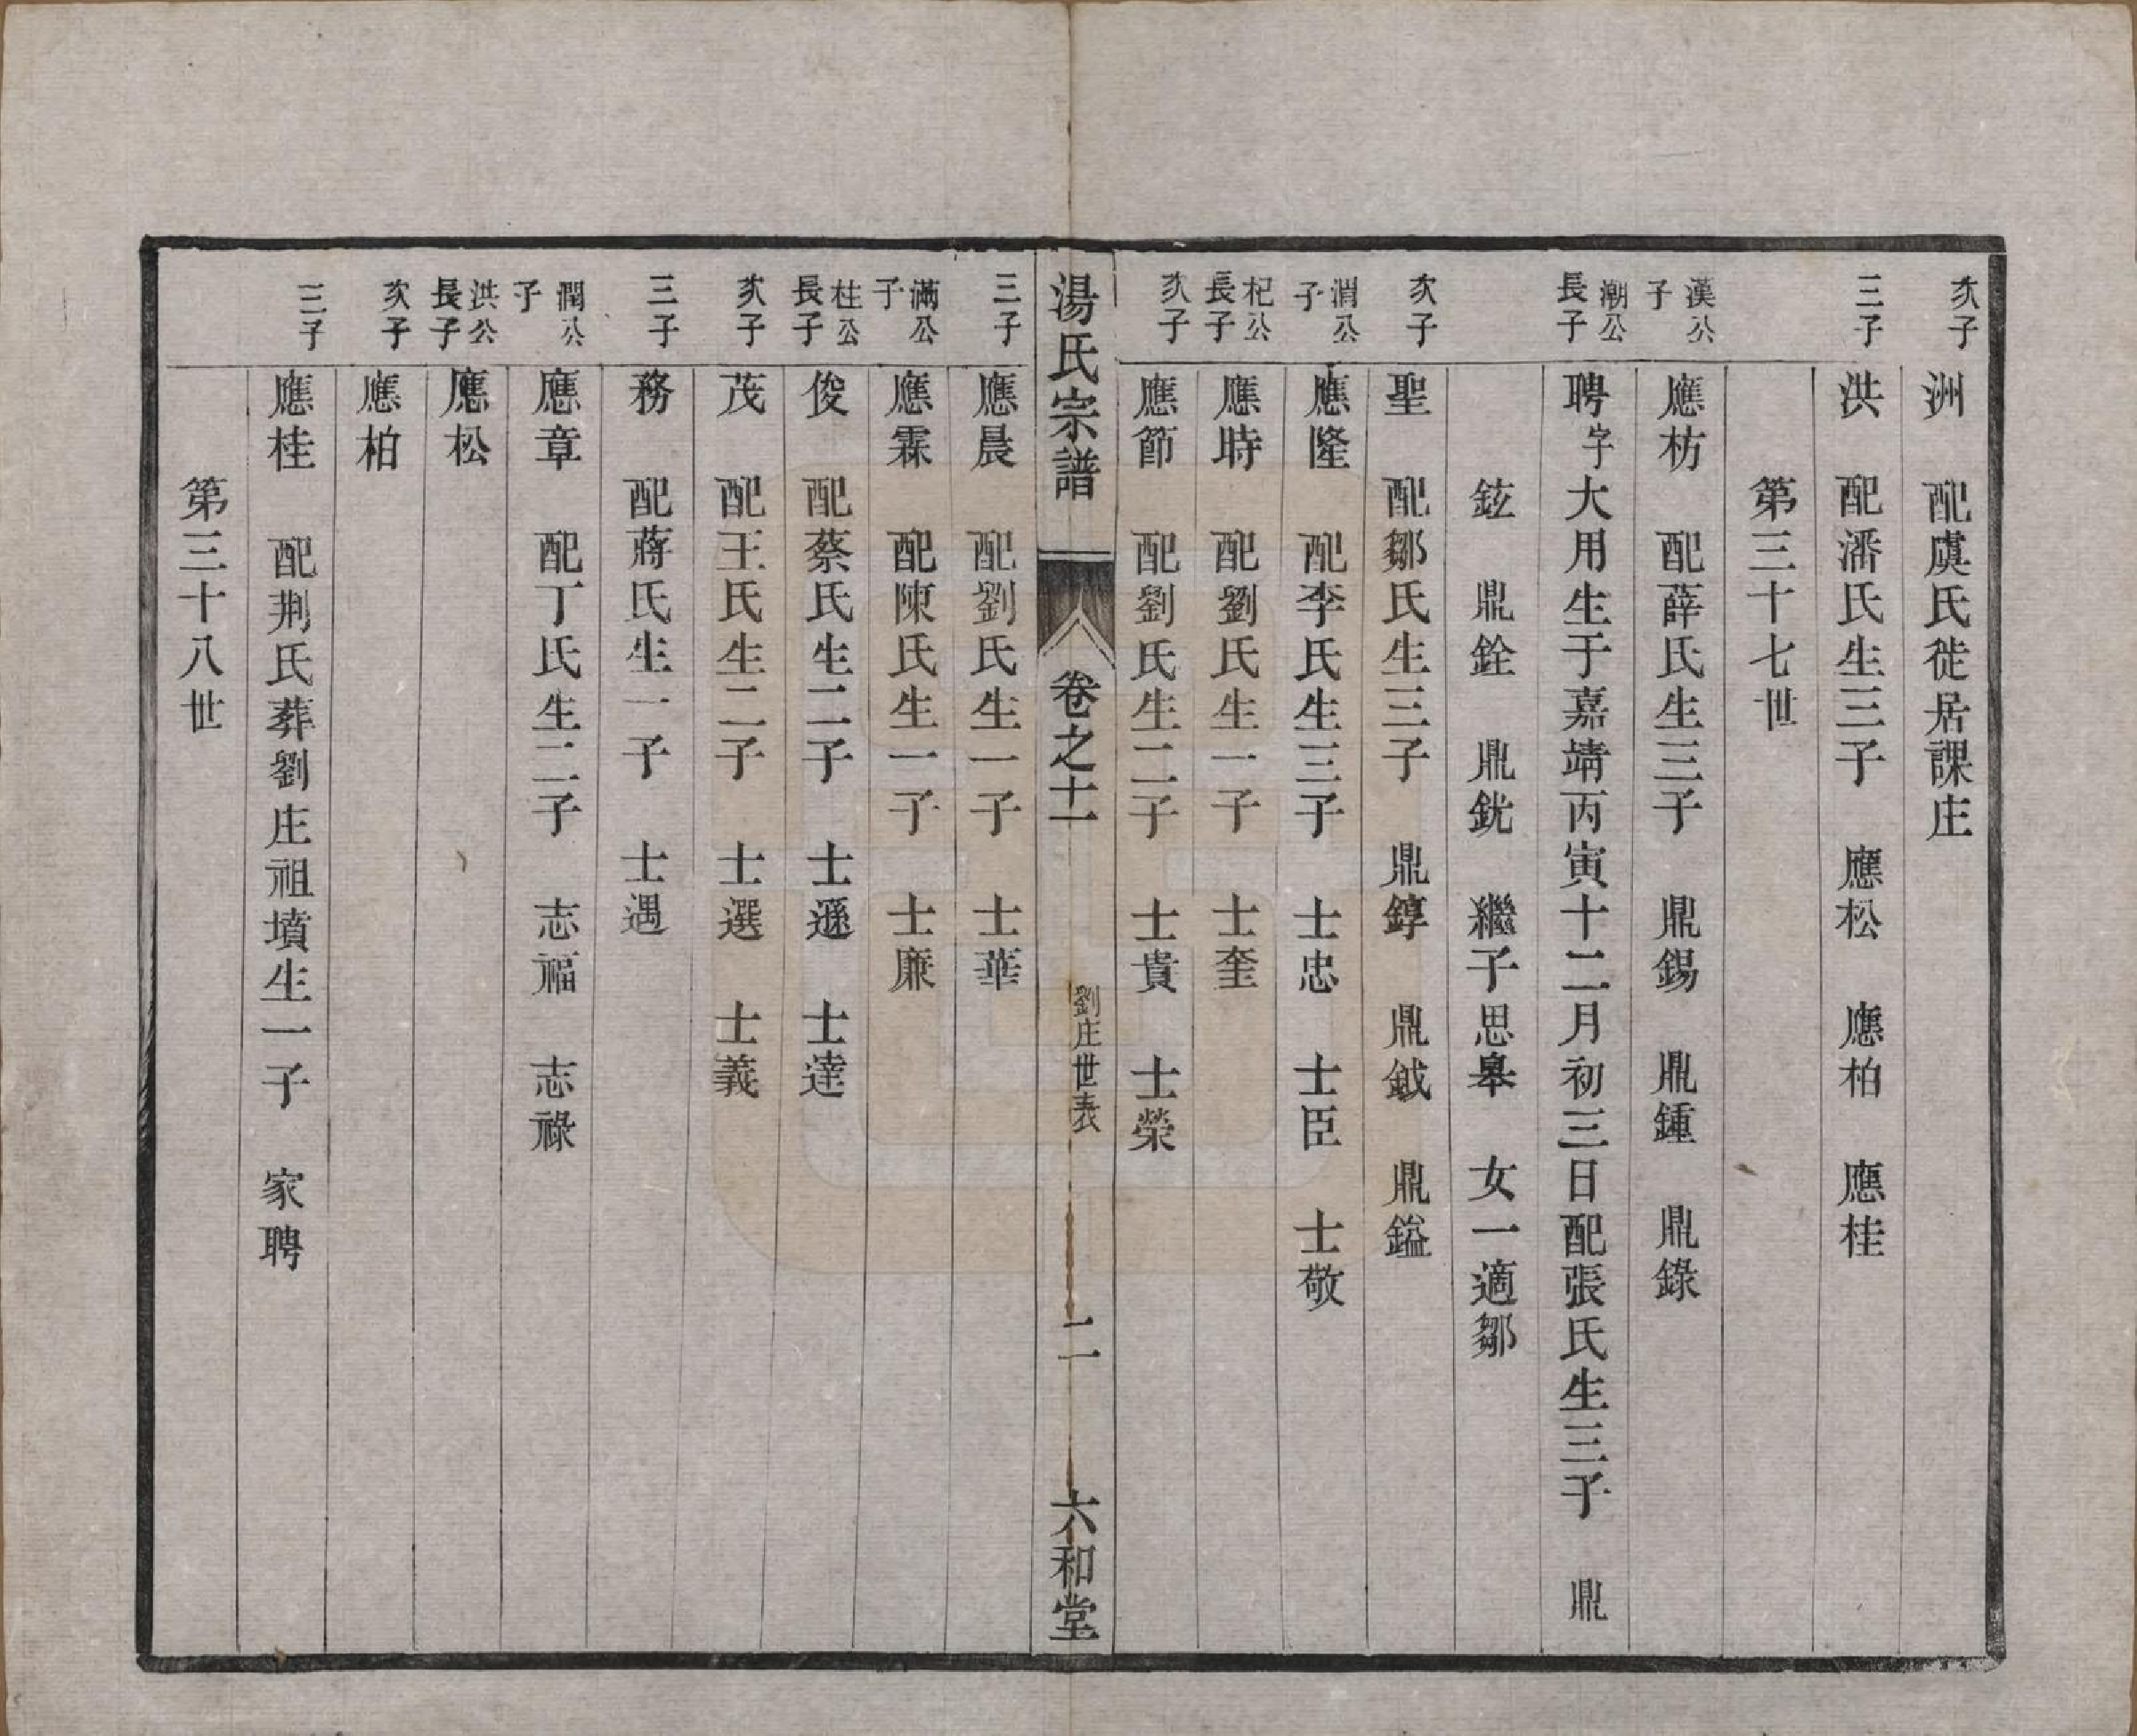 次子 洲 配虞氏徙居課庄
三子 洪 配潘氏生三子 應松 應柏 應桂
第三十七世
漢公子 應枋 配薛氏生三子 鼎錫 鼎鍾 鼎錄
潮公長子 聘字大用生于嘉靖丙寅十二月初三日配張氏生三子 鼎
鉉 鼎銓 鼎銧 繼子思皋 女一適鄒
次子 聖 配鄒氏生三子 鼎錞 鼎鉞 鼎鎰
渭公子 應隆 配李氏生三子 士忠 士臣 士敬
杞公長子 應時 配劉氏生一子 士奎
次子 應節 配劉氏生二子 士貴 士榮
湯氏宗譜 卷之十一 劉庄世表 二 六和堂
三子 應晨 配劉氏生一子 士華
滿公子 應霖 配陳氏生一子 士廉
柱公長子 俊 配蔡氏生二子 士遜 士達
次子 茂 配王氏生二子 士選 士義
三子 務 配蔣氏生一子 士遇
潤公子 應章 配丁氏生二子 志福 志祿
洪公長子 應松
次子 應柏
三子 應桂 配荆氏葬劉庄祖墳生一子 家聘
第三十八世